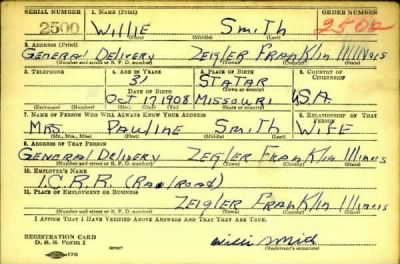 SERIAL NUMBER 1. NAME (Print) ORDER NUMBER
2500 WILLIE SMITH 2502
(First) (Middle) (Last)
2. ADDRESS (Print)
GENERAL DELIVERY ZEIGLER FRANKLIN ILLINOIS
(Number and street or R. F. D. number) (Town) (County) (State)
3. TELEPHONE 4. AGE IN YEARS 5. PLACE OF BIRTH 6. COUNTRY OF CITIZENSHIP
31 STATAR
DATE OF BIRTH (Town or county)
OCT 17 1908 MISSOURI U.S.A.
(Exchange) (Number) (Mo.) (Day) (Yr.) (State or country)
7. NAME OF PERSON WHO WILL ALWAYS KNOW YOUR ADDRESS 8. RELATIONSHIP OF THAT PERSON
MRS. PAULINE SMITH WIFE
(Mr., Mrs., Miss) (First) (Middle) (Last)
9. ADDRESS OF THAT PERSON
GENERAL DELIVERY ZEIGLER FRANKLIN ILLINOIS
(Number and street or R. F. D. number) (Town) (County) (State)
10. EMPLOYER'S NAME
I.C.R.R. (RAILROAD)
11. PLACE OF EMPLOYMENT OR BUSINESS
ZEIGLER FRANKLIN ILLINOIS
(Number and street or R. F. D. number) (Town) (County) (State)
I AFFIRM THAT I HAVE VERIFIED ABOVE ANSWERS AND THAT THEY ARE TRUE.
REGISTRATION CARD
D. S. S. Form 1 (Registrant's signature)